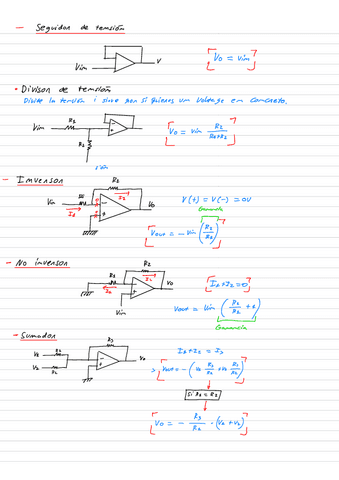 - Seguidor de tensión
Vin
V
Vo = Vin
• Divisor de tensión
Divide la tensión i sirve por si quieres um voltage em concreto.
Vin
R1
R2
Vo = Vin R2 / R1+R2
- Imversor
Vin
R1
R2
I1
I2
Vo
V(+) = V(-) = 0V
Ganancia
Vout = - Vin (R2/R1)
- No inversor
R1
R2
I1
I2
Vo
Vin
I1+I2=0
Vout = Vin (R2/R1 + 1)
Ganancia
- Sumador
R1
R2
R3
V1
V2
Vo
I1+I2 = I3
Vout = - (V1 R3/R1 + V2 R3/R2)
Si R1 = R2
Vo = - R3/R1 · (V1 + V2)